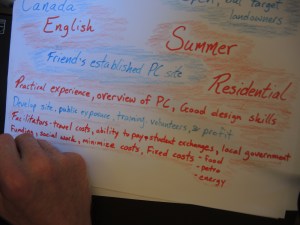 Canada
our target
landowners
English
Summer
Friend's established PC site
Residential
Practical experience, overview of PC, Good design skills
Develop site, public exposure, training volunteers, profit
Facilitators-travel costs, ability to pay student exchanges, local government
Funding, social work, minimize costs, Fixed costs - Food
- petro
- energy